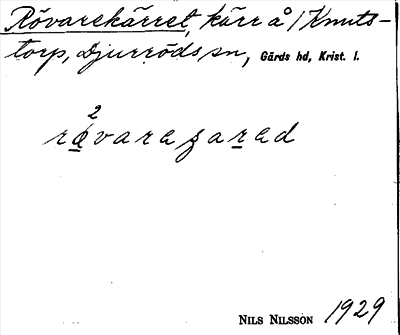 Rövarekärret, kärr å / Knuts-
torp, Djurröds sn, Gärds hd, Krist. l.
2
NILS NILSSON 1929